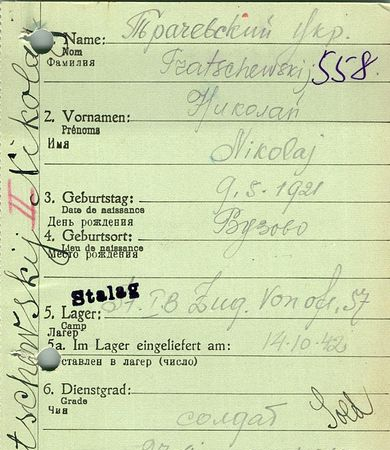 1. Name: Трачевский Укр.
Nom
Фамилия Tratschewskij 558.
Николай
2. Vornamen:
Prénoms
Имя Nikolaj
9.5.1921
3. Geburtstag:
Date de naissance
День рождения Вузово
4. Geburtsort:
Lieu de naissance
Место рождения
Stalag
St. I B Zug. Von of. 57
5. Lager:
Camp
Лагер
5a. Im Lager eingeliefert am: 14.10.42
оставлен в лагер (число)
6. Dienstgrad:
Grade
Чин
солдат Sold
tschewskij Nikolaj
II